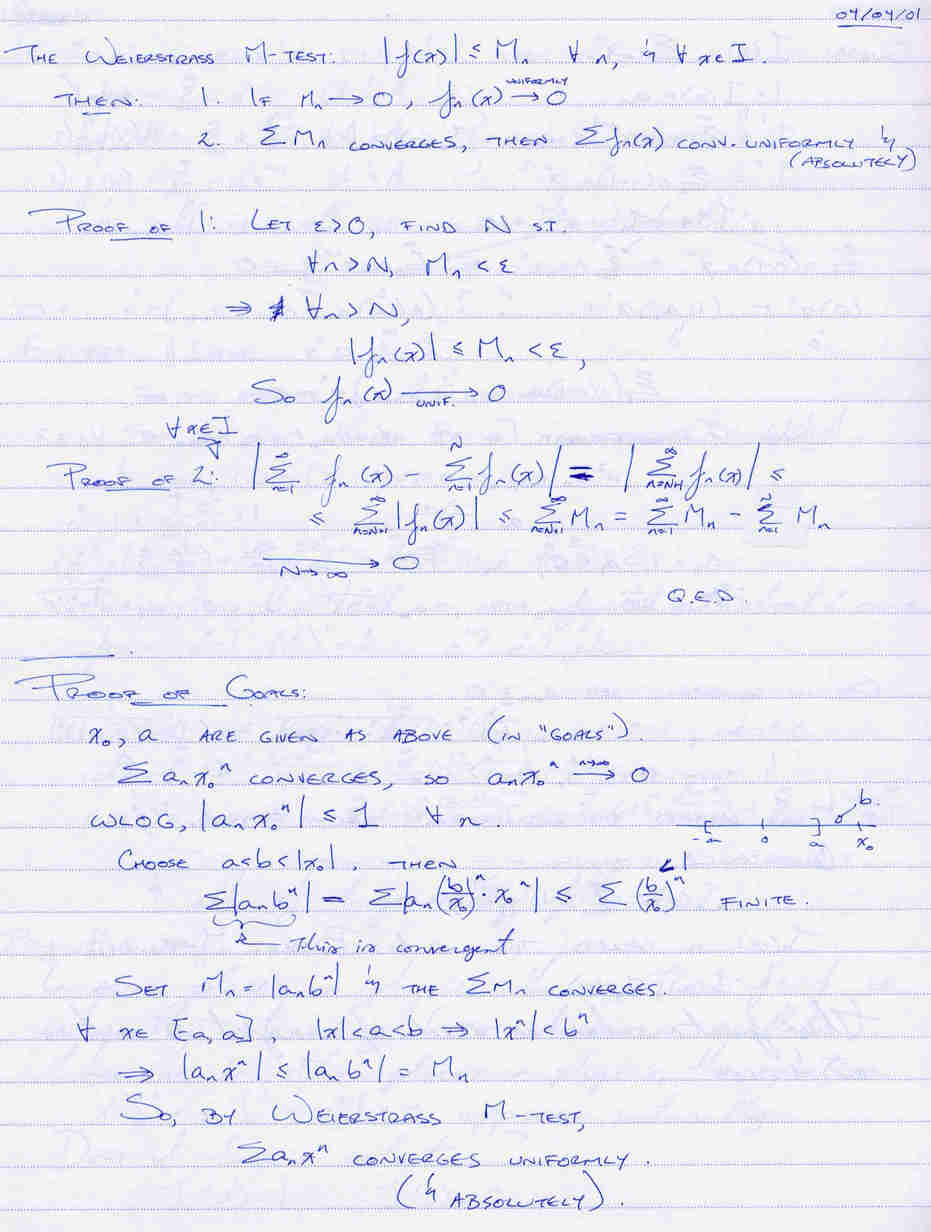 04/04/01
THE WEIERSTRASS M-TEST: |f(x)| ≤ Mₙ ∀ n, & ∀ x∈I.
THEN: 1. IF Mₙ → 0, fₙ(x) →^{UNIFORMLY} 0
2. ΣMₙ CONVERGES, THEN Σfₙ(x) CONV. UNIFORMLY &
(ABSOLUTELY)
PROOF OF 1: LET ε>0, FIND N ST.
∀n>N, Mₙ < ε
⇒ ∀n>N,
|fₙ(x)| ≤ Mₙ < ε,
SO fₙ(x) →_{UNIF.} 0
∀x∈I
PROOF OF 2: |Σ_{n=1}^{∞} fₙ(x) - Σ_{n=1}^{N} fₙ(x)| = |Σ_{n=N+1}^{∞} fₙ(x)| ≤
≤ Σ_{n=N+1}^{∞} |fₙ(x)| ≤ Σ_{n=N+1}^{∞} Mₙ = Σ_{n=1}^{∞} Mₙ - Σ_{n=1}^{N} Mₙ
→_{N→∞} 0
Q.E.D.
PROOF OF GOALS:
x₀, a ARE GIVEN AS ABOVE (IN "GOALS").
Σaₙx₀ⁿ CONVERGES, SO aₙx₀ⁿ →^{n→∞} 0
WLOG, |aₙx₀ⁿ| ≤ 1 ∀ n.
b.
-a 0 a x₀
CHOOSE a<b<|x₀|, THEN
<1
Σ|aₙbⁿ| = Σ|aₙ(b/x₀)ⁿ·x₀ⁿ| ≤ Σ(b/x₀)ⁿ FINITE.
This is convergent
SET Mₙ = |aₙbⁿ| & THE ΣMₙ CONVERGES.
∀ x∈ [a, a], |x|<a<b ⇒ |xⁿ|<bⁿ
⇒ |aₙxⁿ| ≤ |aₙbⁿ| = Mₙ
SO, BY WEIERSTRASS M-TEST,
Σaₙxⁿ CONVERGES UNIFORMLY.
(& ABSOLUTELY).